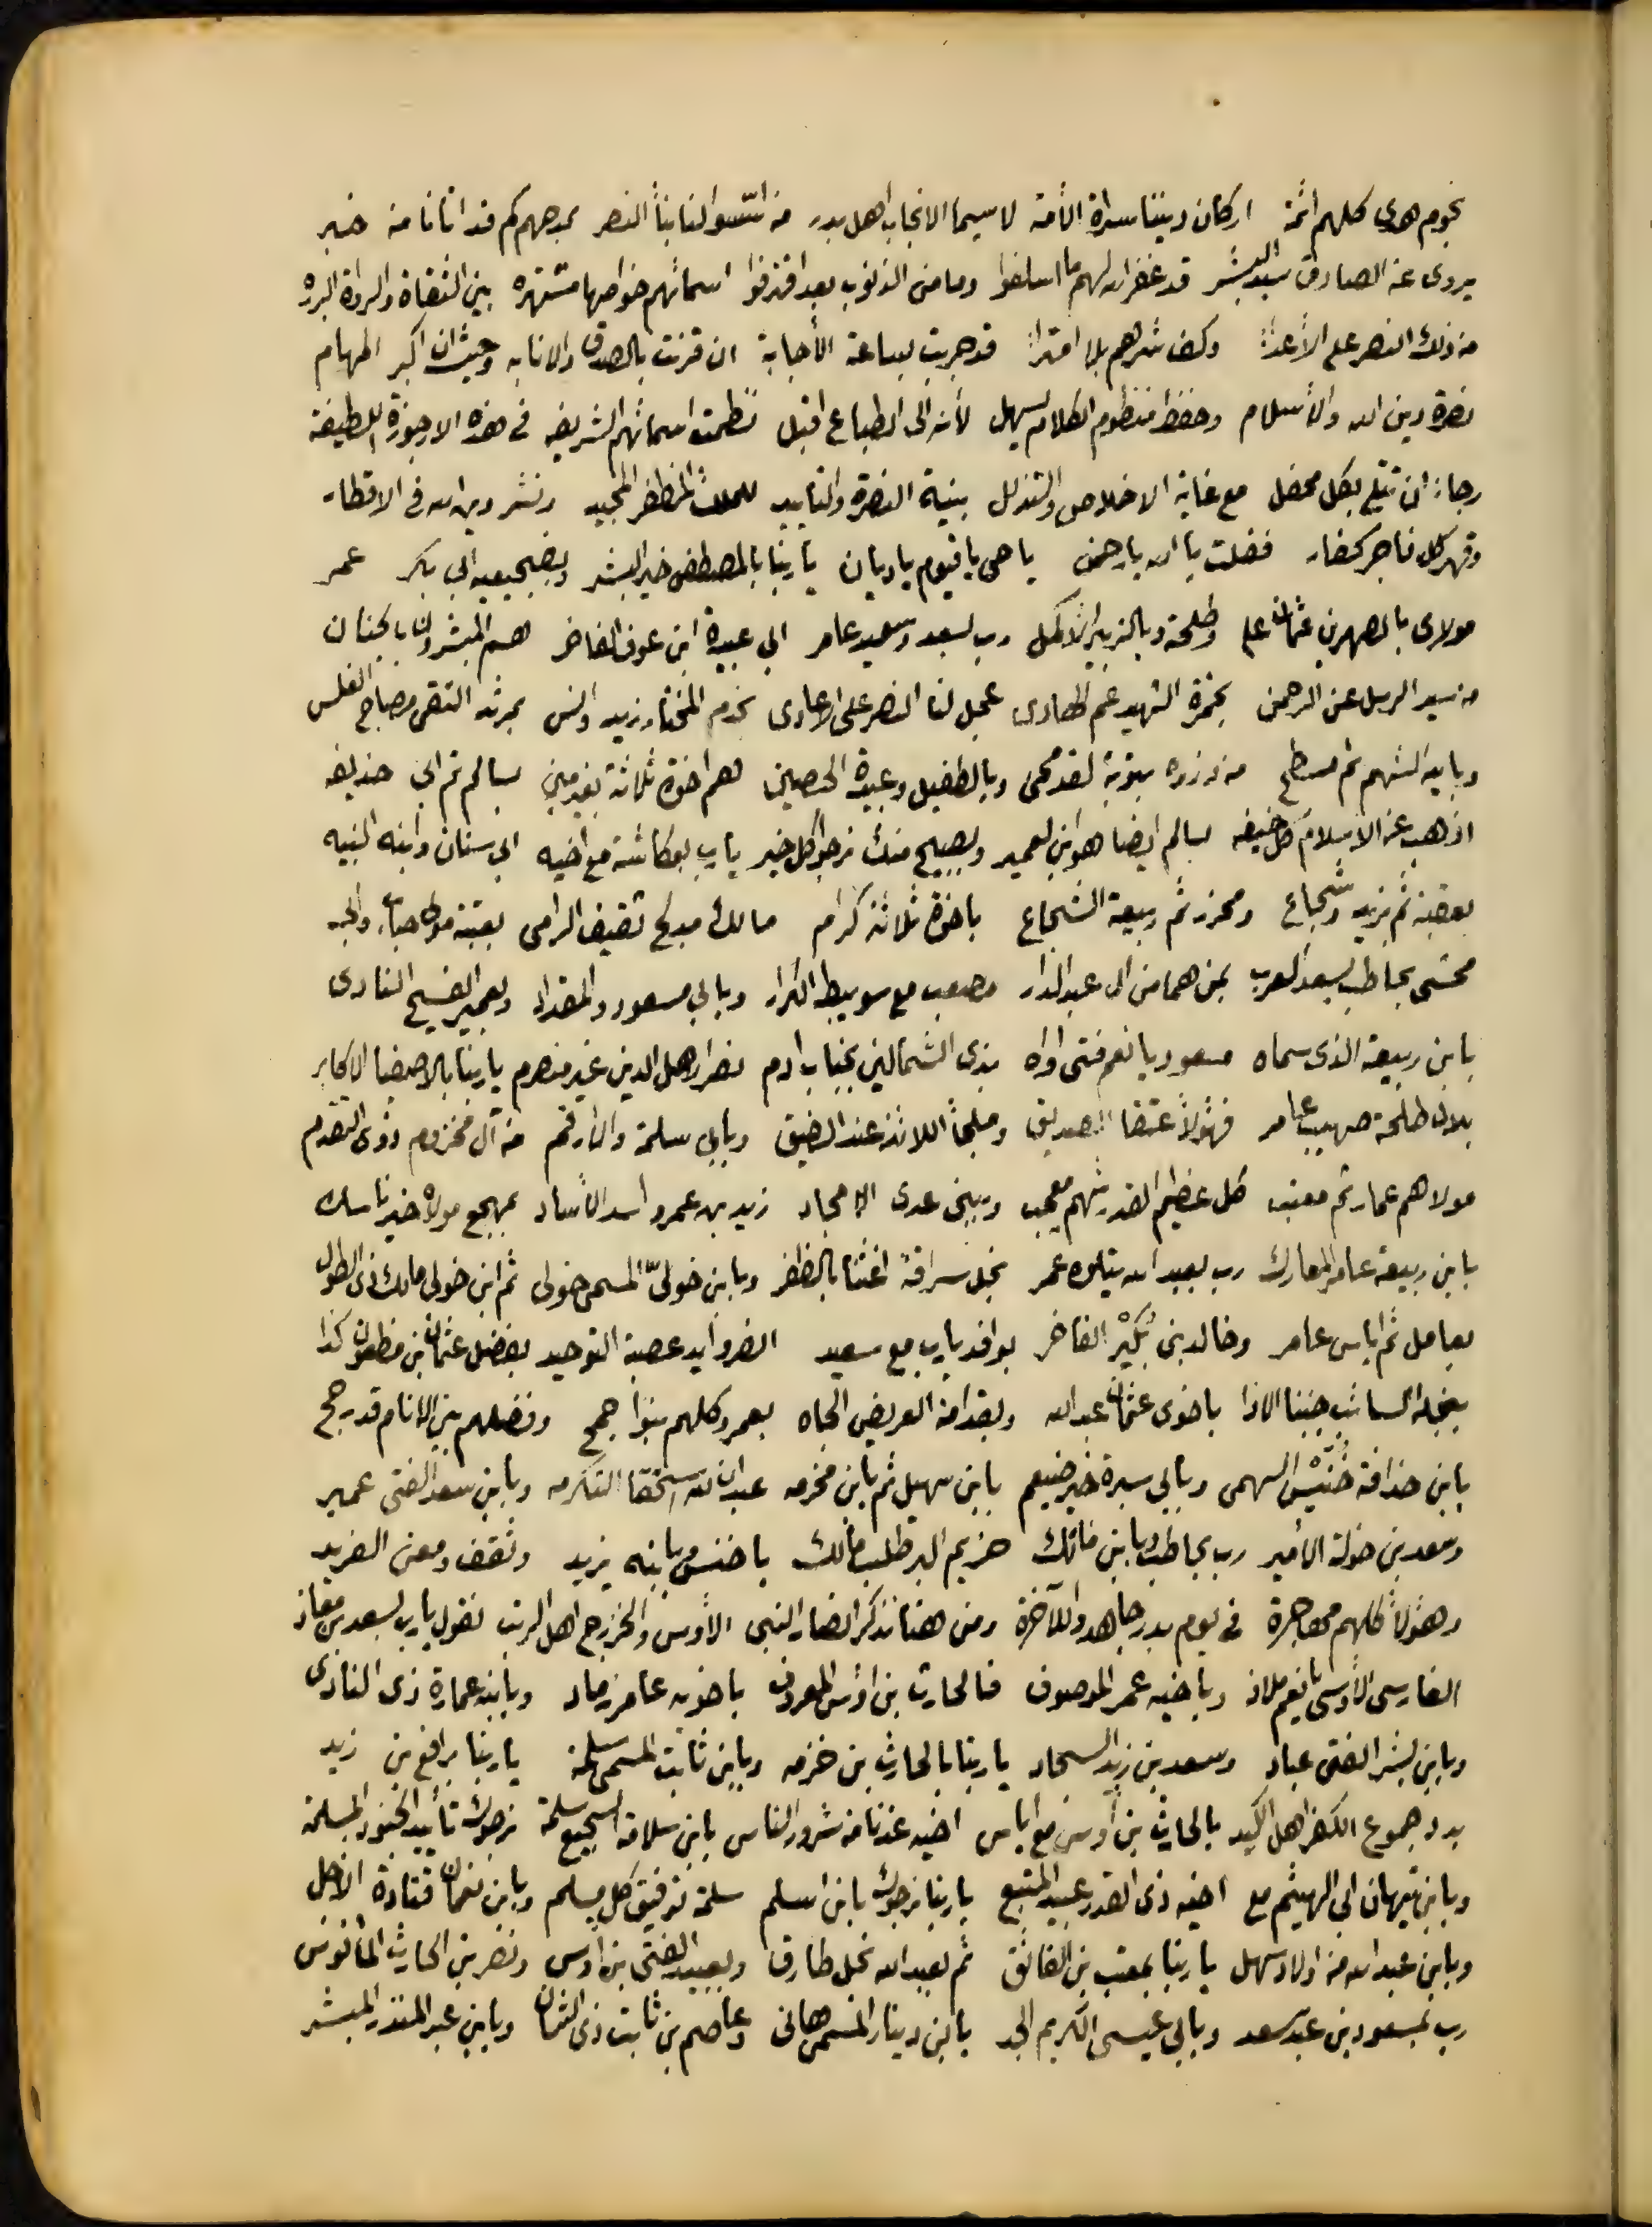 نجوم هدى كلهم ائمة اركان ديننا سراة الأمة لا سيما الانجاب اهل بدر من اسسوا لنا بناً النصر بمدحهم كم قد اتانا من خبر
يروى عن الصادق سيد البشر قد غفر الله لهم ما اسلفوا وما من الذنوب بعد اقترفوا اسمائهم خواصها مشتهره بين الثقاة والرواة البرره
من ذلك النصر على الأعداً وكف شرهم بلا امتراً قد جربت لساعة الأجابة ان قرنت بالصدق والانابه وحيث ان اكبر المهام
نصرة دين الله والأسلام وحفظ منظوم الكلام يسهل لأنه الى الطباع اقبل نظمت اسمائهم الشريفه في هذه الارجوزة اللطيفه
رجاءً ان تتلى بكل محفل مع غاية الاخلاص والتذلل بنية النصرة والتأييد للملك المظفر المجيد ونشر دين الله في الاقطار
وقهر كل فاجر كفار فقلت يا الله يا رحمن يا حي يا قيوم يا ديان يا ربنا بالمصطفى خير البشر وبضجيعيه ابي بكر عمر
مولاى بالصهرين عثمان على وطلحة وبالزبير الأكمل رب بسعد وسعيد عامر ابي عبيدة ابن عوف الفاخر هم المبشرون بالجنان
من سيد الرسل عن الرحمن بحمزة الشهيد عم الهادى عجل لنا النصر على الاعادى بخدم المختار زيد وانس بمرثد التقى مصباح الغلس
وبابيه الشهم ثم مسطح من وزره بتوبة لقد محى وبالطفيل وعبيدة الحصين هم اخوة ثلاثة بغير مين بسالم ثم ابي حذيفه
اذ هب عن الاسلام كل خيفه بسالم ايضا هو ابن لعمير وبصبيح منك نرجوا كل خير يا رب بعكاشة مع اخيه ابي سنان وابنه النبيه
بعقبة ثم يزيد وشجاع ومحرز ثم ربيعة الشجاع باخوة ثلاثة كرام مالك مدلج ثقيف الرامى بعتبة مولى حباب وابي
مخشى بحاطب بسعد العرب بمن هما من ال عبد الدار مصعب مع سويبط الكرار وبابي مسعود والمقداد وبعمير الفسيح النادى
بابن ربيعة الذى سماه مسعود يا نعم فتى اواه بذى الشمالين بخباب ادم نصرا لاهل الدين غير منصرم يا ربنا بالاصفيا الاكابر
بلال طلحة صهيب عامر فهؤلاً عتقا الصديق وملجأ اللائذ عند الضيق وبابي سلمة والأرقم من آل مخزوم ذوى التقدم
مولاهم عمار ثم معتب كل عظيم القدر شهم معجب وببنى عدى الامجاد زيد بن عمرو اسد الأساد بمهجع مولاه خير ناسك
بابن ربيعة عامر المعارك رب بعبد الله يتلوه عمر نجل سراقة اغثنا بالظفر وبابن خولىّ المسمى خولى ثم ابن خولى مالك ذى الطول
بعامل ثم اياس عامر وخالد بني بُكَيْر الفاخر بواقد يا رب مع سعيد انصر وايد عصبة التوحيد بفضل عثمان بن مظعون كذا
بنجله السائب جنبنا الاذا باخوى عثمان عبد الله وبقدامة العريض الجاه بمعمر وكلهم بنوا جمح وفضلهم بين الانام قد رجح
بابن حذافة خُنَيْس السهمى وبابي سبرة خير ضيغم بابن سهيل ثم بابن مخرمه عبدان لله استحقا التكرمه وبابن سعد الفتى عمير
وسعد بن خولة الأمير رب بحاطب وبابن مالك باخنس وبابنه يزيد وثقف ومعن الفريد
وهؤلاً كلهم مهاجرة في يوم بدر جاهدوا للآخرة ومن هنا نذكر انصار النبى الأوس والخزرج اهل الرتب نقول يا رب بسعد بن معاذ
الفارسى الأوسى يا نعم ملاذ وباخيه عمر الموصوف فالحارث بن اوس المعروف باخوته عامر زياد وبابنه عمارة ذى النادى
وبابن بشر الفتى عباد وسعد بن زيد السجاد يا ربنا بالحارث بن خزمه وبابن ثابت المسمى سلمة يا ربنا برافع بن زيد
بدد جموع الكفر اهل الكيد بالحارث بن أوس مع اياس اخيه عذنا من شرور الناس بابن سلامة سلمة نرجوك تأييد الجنود المسلمة
وبابن تيهان ابي الهيثم مع اخيه ذى القدر عبيد المتبع يا ربنا نرجوك بابن اسلم سلمة توفيق كل مسلم وبابن نعمان قتادة الأجل
وبابن عبد الله من اولاد سهل يا ربنا بمعتب بن الفائق ثم بعبد الله نجل طارق وبعبيد الفتى بن أوس ونصر بن الحارث المأنوس
رب بمسعود بن عبد سعد وبابي عيسى الكريم الجد بابن دينار المسمى هانى وعاصم بن ثابت ذى الشان وبابن عبد المنذر المبشر